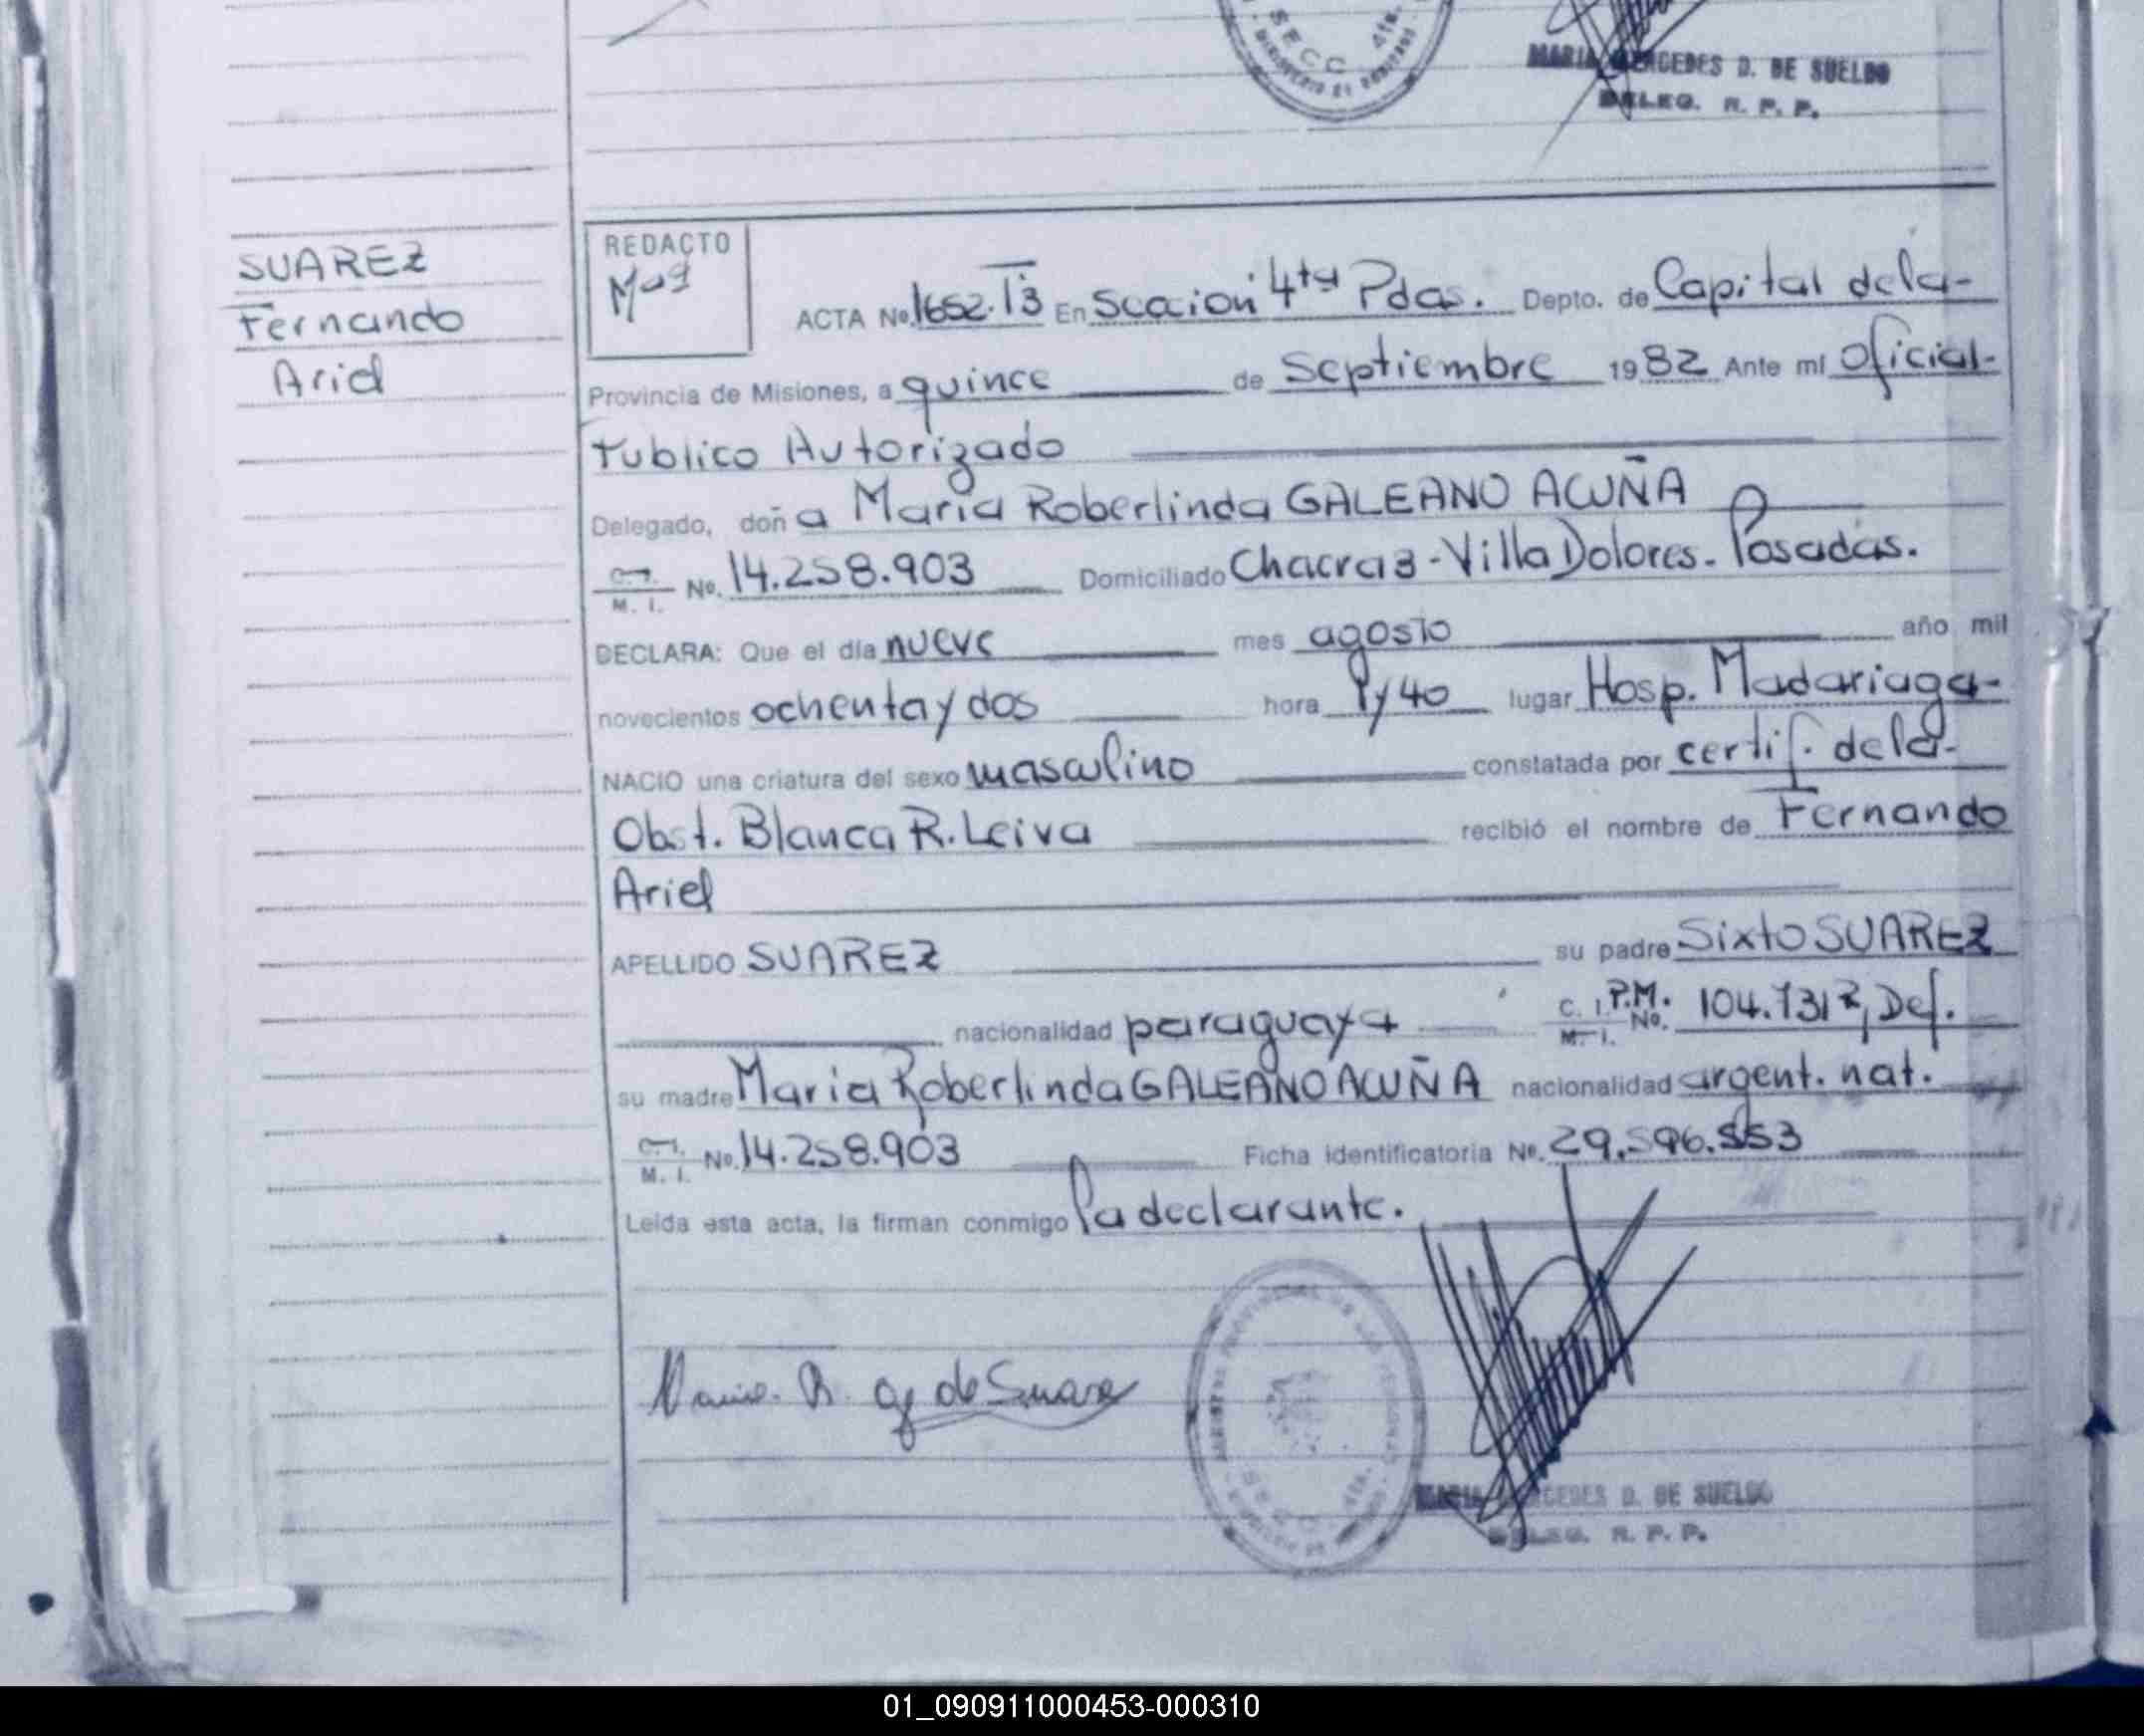 SECC 4ta.
MARIA MERCEDES D. DE SUELDO
DELEG. R. P. P.
SUAREZ
Fernando
Ariel
REDACTO
ACTA No. 1652. T3 En Sección 4ta Pdas. Depto. de Capital de la-
Provincia de Misiones, a quince de Septiembre 1982 Ante mí Oficial-
Publico Autorizado
Delegado, doña Maria Roberlinda GALEANO ACUÑA
C.I. M. I. No. 14.258.903 Domiciliado Chacra 3 - Villa Dolores - Posadas.
DECLARA: Que el día nueve mes agosto año mil
novecientos ochenta y dos hora y 40 lugar Hosp. Madariaga-
NACIO una criatura del sexo masculino constatada por certif. de la-
Obst. Blanca R. Leiva recibió el nombre de Fernando
Ariel
APELLIDO SUAREZ su padre Sixto SUAREZ
nacionalidad paraguaya C. I. P.M. M. I. No. Def.
su madre Maria Roberlinda GALEANO ACUÑA nacionalidad argent. nat.
C.I. M. I. No. 14.258.903 Ficha identificatoria No. 29.596.553
Leída esta acta, la firman conmigo la declarante.
Maria R. G de Suarez
SECC 4ta.
MARIA MERCEDES D. DE SUELDO
DELEG. R. P. P.
01_090911000453-000310